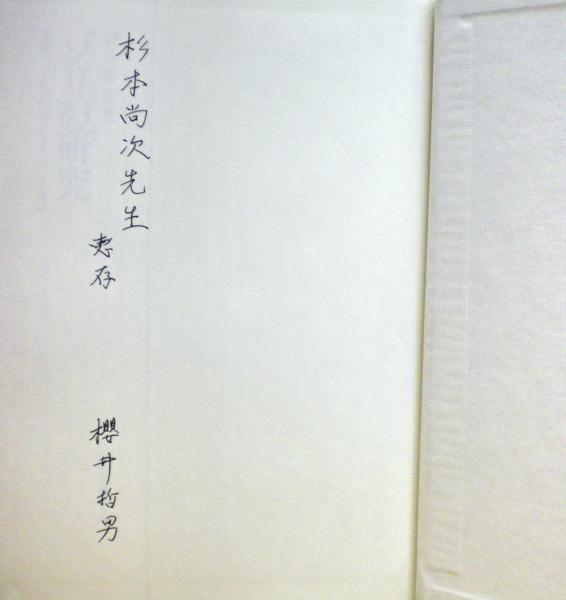 杉本尚次先生
恵存
櫻井哲男